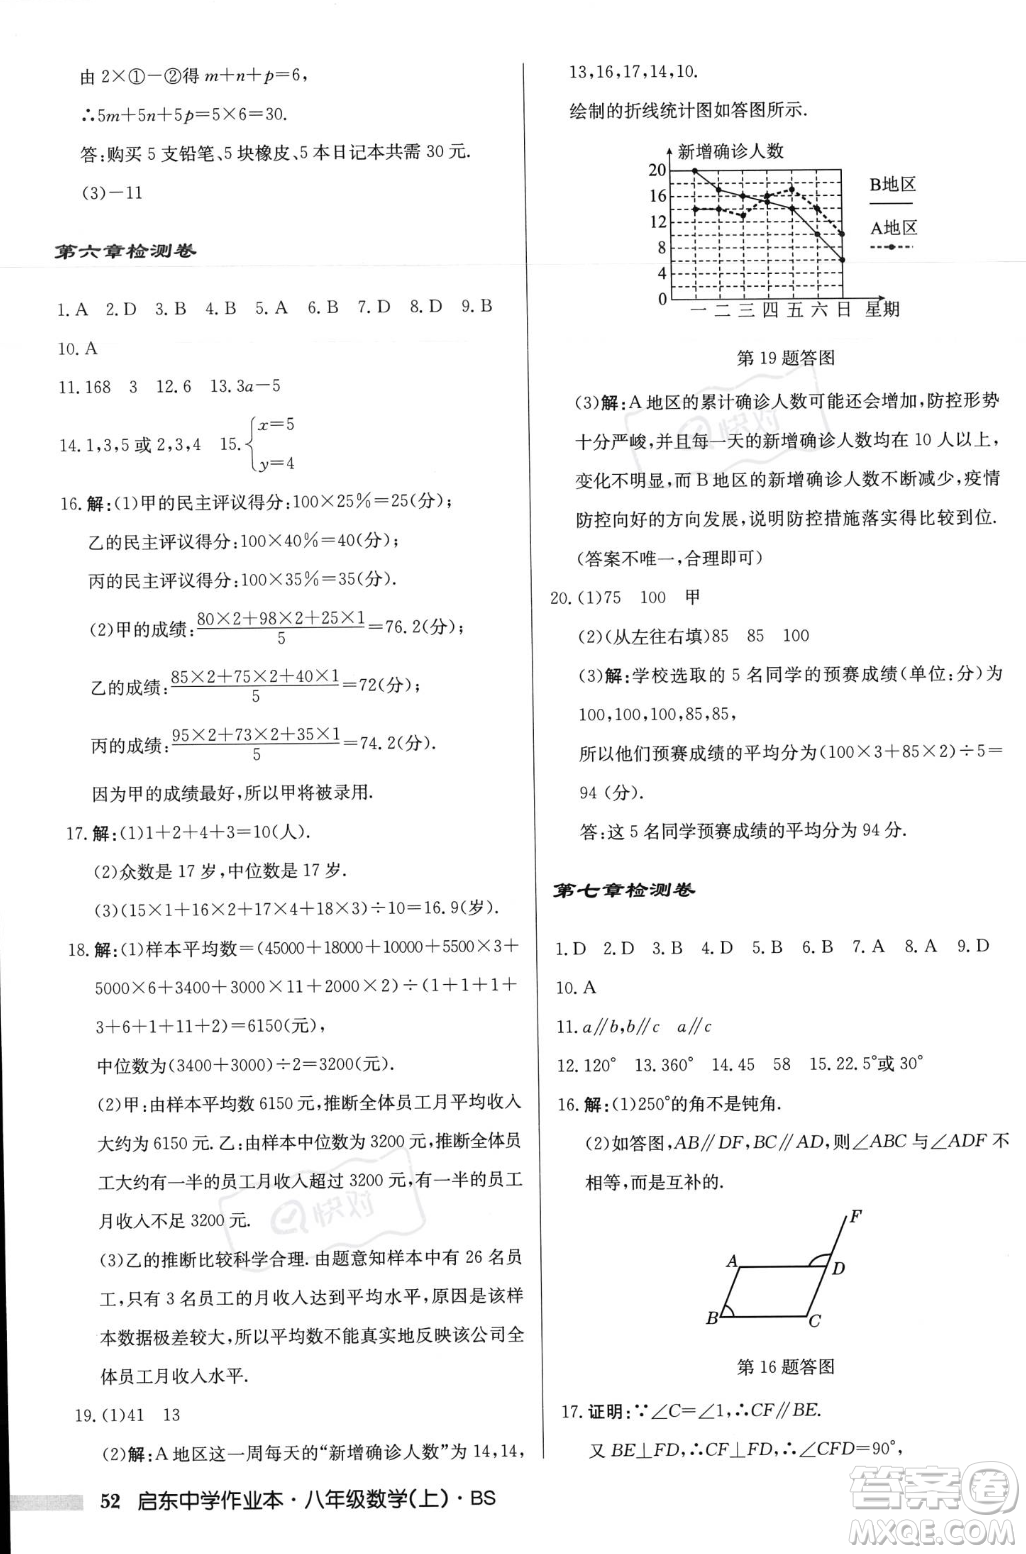 由 2×①-②得 m+n+p=6,
∴5m+5n+5p=5×6=30.
答:购买 5 支铅笔、5 块橡皮、5 本日记本共需 30 元.
(3)-11
第六章检测卷
1.A 2.D 3.B 4.B 5.A 6.B 7.D 8.D 9.B
10.A
11.168 3 12.6 13.3a-5
14.1,3,5 或 2,3,4 15.{x=5
y=4
16.解:(1)甲的民主评议得分:100×25%=25(分);
乙的民主评议得分:100×40%=40(分);
丙的民主评议得分:100×35%=35(分).
(2)甲的成绩:(80×2+98×2+25×1)/5=76.2(分);
乙的成绩:(85×2+75×2+40×1)/5=72(分);
丙的成绩:(95×2+73×2+35×1)/5=74.2(分).
因为甲的成绩最好,所以甲将被录用.
17.解:(1)1+2+4+3=10(人).
(2)众数是 17 岁,中位数是 17 岁.
(3)(15×1+16×2+17×4+18×3)÷10=16.9(岁).
18.解:(1)样本平均数=(45000+18000+10000+5500×3+
5000×6+3400+3000×11+2000×2)÷(1+1+1+
3+6+1+11+2)=6150(元),
中位数为(3400+3000)÷2=3200(元).
(2)甲:由样本平均数 6150 元,推断全体员工月平均收入
大约为 6150 元.乙:由样本中位数 3200 元,推断全体员
工大约有一半的员工月收入超过 3200 元,有一半的员工
月收入不足 3200 元.
(3)乙的推断比较科学合理.由题意知样本中有 26 名员
工,只有 3 名员工的月收入达到平均水平,说明该样
本数据极差较大,所以平均数不能真实地反映该公司全
体员工月收入水平.
19.(1)41 13
(2)解:A 地区这一周每天的“新增确诊人数”为 14,14,
52 启东中学作业本·八年级数学(上)·BS
13,16,17,14,10.
绘制的折线统计图如答图所示.
新增确诊人数
20
16
12
8
4
0
一 二 三 四 五 六 日 星期
B地区
A地区
第 19 题答图
(3)解:A 地区的累计确诊人数可能还会增加,防控形势
十分严峻,并且每一天的新增确诊人数均在 10 人以上,
变化不明显,而 B 地区的新增确诊人数不断减少,疫情
防控向好的方向发展,说明防控措施落实得比较到位.
(答案不唯一,合理即可)
20.(1)75 100 甲
(2)(从左往右填)85 85 100
(3)解:学校选取的 5 名同学的预赛成绩(单位:分)为
100,100,100,85,85,
所以他们预赛成绩的平均分为(100×3+85×2)÷5=
94 (分).
答:这 5 名同学预赛成绩的平均分为 94 分.
第七章检测卷
1.D 2.D 3.B 4.D 5.B 6.B 7.A 8.A 9.D
10.A
11.a∥b,b∥c a∥c
12.120° 13.360° 14.45 58 15.22.5°或 30°
16.解:(1)250°的角不是钝角.
(2)如答图,AB∥DF,BC∥AD,则∠ABC 与∠ADF 不
相等,而是互补的.
F
A
D
B
C
第 16 题答图
17.证明:∵∠C=∠1,∴CF∥BE.
又 BE⊥FD,∴CF⊥FD,∴∠CFD=90°,
快对
快对
答案圈
MXQE.COM